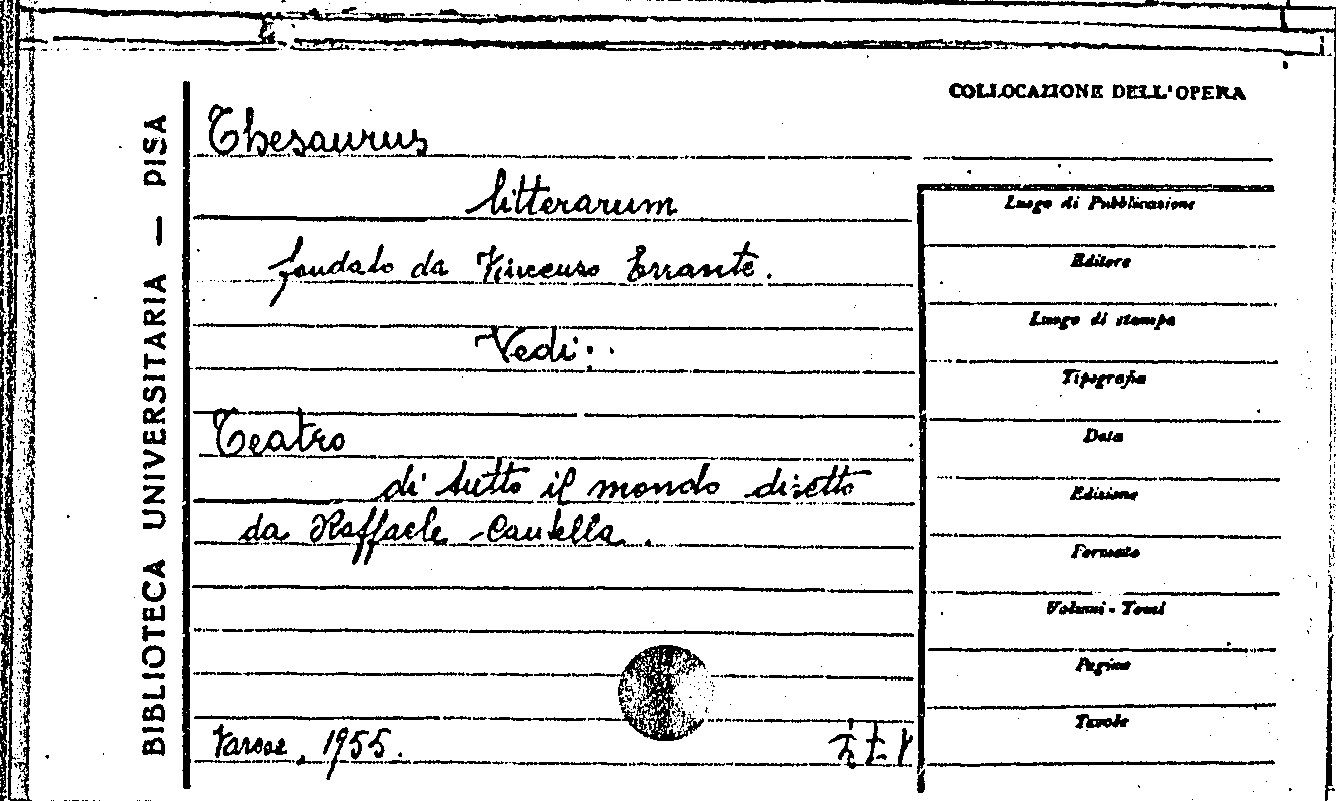 BIBLIOTECA UNIVERSITARIA — PISA
Thesaurus
litterarum
fondato da Vincenzo Errante.
Vedi:
Teatro
di tutto il mondo diretto
da Raffaele Cantella.
Varese, 1955.
COLLOCAZIONE DELL'OPERA
Luogo di Pubblicazione
Editore
Luogo di stampa
Tipografia
Data
Edizione
Formato
Volumi - Tomi
Pagine
Tavole